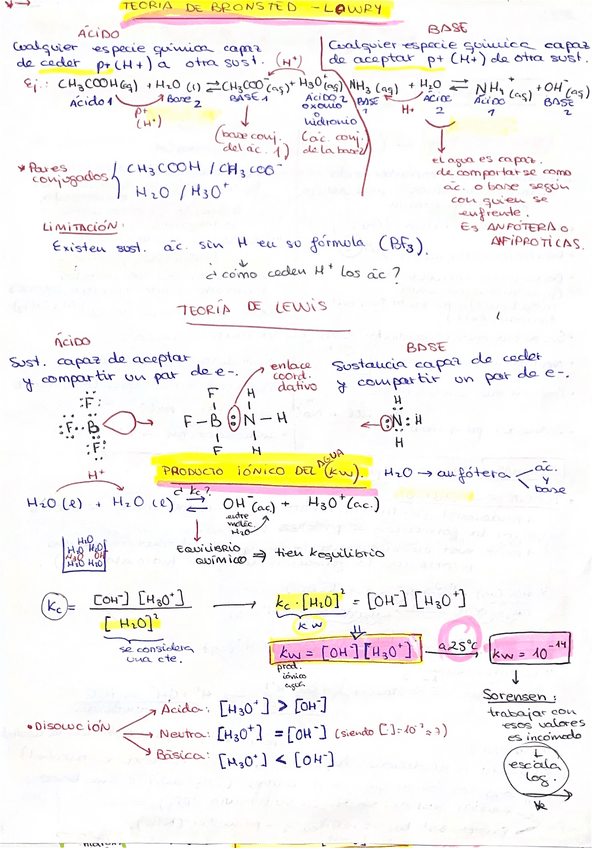 TEORÍA DE BRONSTED - LOWRY
ÁCIDO
Cualquier especie química capaz
de ceder p+ (H+) a otra sust.
BASE
Cualquier especie química capaz
de aceptar p+ (H+) de otra sust.
(H+)
Ej.: CH3COOH(aq) + H2O (l) ⇄ CH3COO-(aq) + H3O+(aq)
Ácido 1
Base 2
BASE 1
ÁCIDO 2
oxonio
o
hidronio
p+
(H+)
(base conj.
del ác. 1)
(ác. conj.
de la base 2)
NH3 (aq) + H2O ⇄ NH4+ (aq) + OH-(aq)
BASE 1
ÁCIDO 2
ÁCIDO 1
BASE 2
H+
el agua es capaz
de comportarse como
ác. o base según
con quien se
enfrente.
Es ANFÓTERA O
ANFIPRÓTICAS.
* Pares
conjugados
CH3COOH / CH3COO-
H2O / H3O+
LIMITACIÓN:
Existen sust. ác. sin H en su fórmula (BF3).
¿cómo ceden H+ los ác?
TEORÍA DE LEWIS
ÁCIDO
Sust. capaz de aceptar
y compartir un par de e-.
enlace
coord.
dativo
BASE
Sustancia capaz de ceder
y compartir un par de e-.
F
F B
F
F H
F - B : N - H
F H
H
N : H
H
PRODUCTO IÓNICO DEL AGUA (KW).
H2O → anfótera
ác.
y
base
H+
¿Kc?
H2O (l) + H2O (l) ⇄ OH-(ac) + H3O+(ac.)
entre
moléc.
H2O
H2O
H2O H2O
H3O OH
H2O H2O
Equilibrio
químico ⇒ tien Kequilibrio
Kc = [OH-] [H3O+]
[H2O]2
se considera
una cte.
→ Kc · [H2O]2 = [OH-] [H3O+]
KW
KW = [OH-] [H3O+]
prod.
iónico
agua
a 25ºC
KW = 10-14
Sorensen:
trabajar con
esos valores
es incómodo
escala
log.
• DISOLUCIÓN
Ácida: [H3O+] > [OH-]
Neutra: [H3O+] = [OH-] (siendo [·] = 10-7 = 7)
Básica: [H3O+] < [OH-]